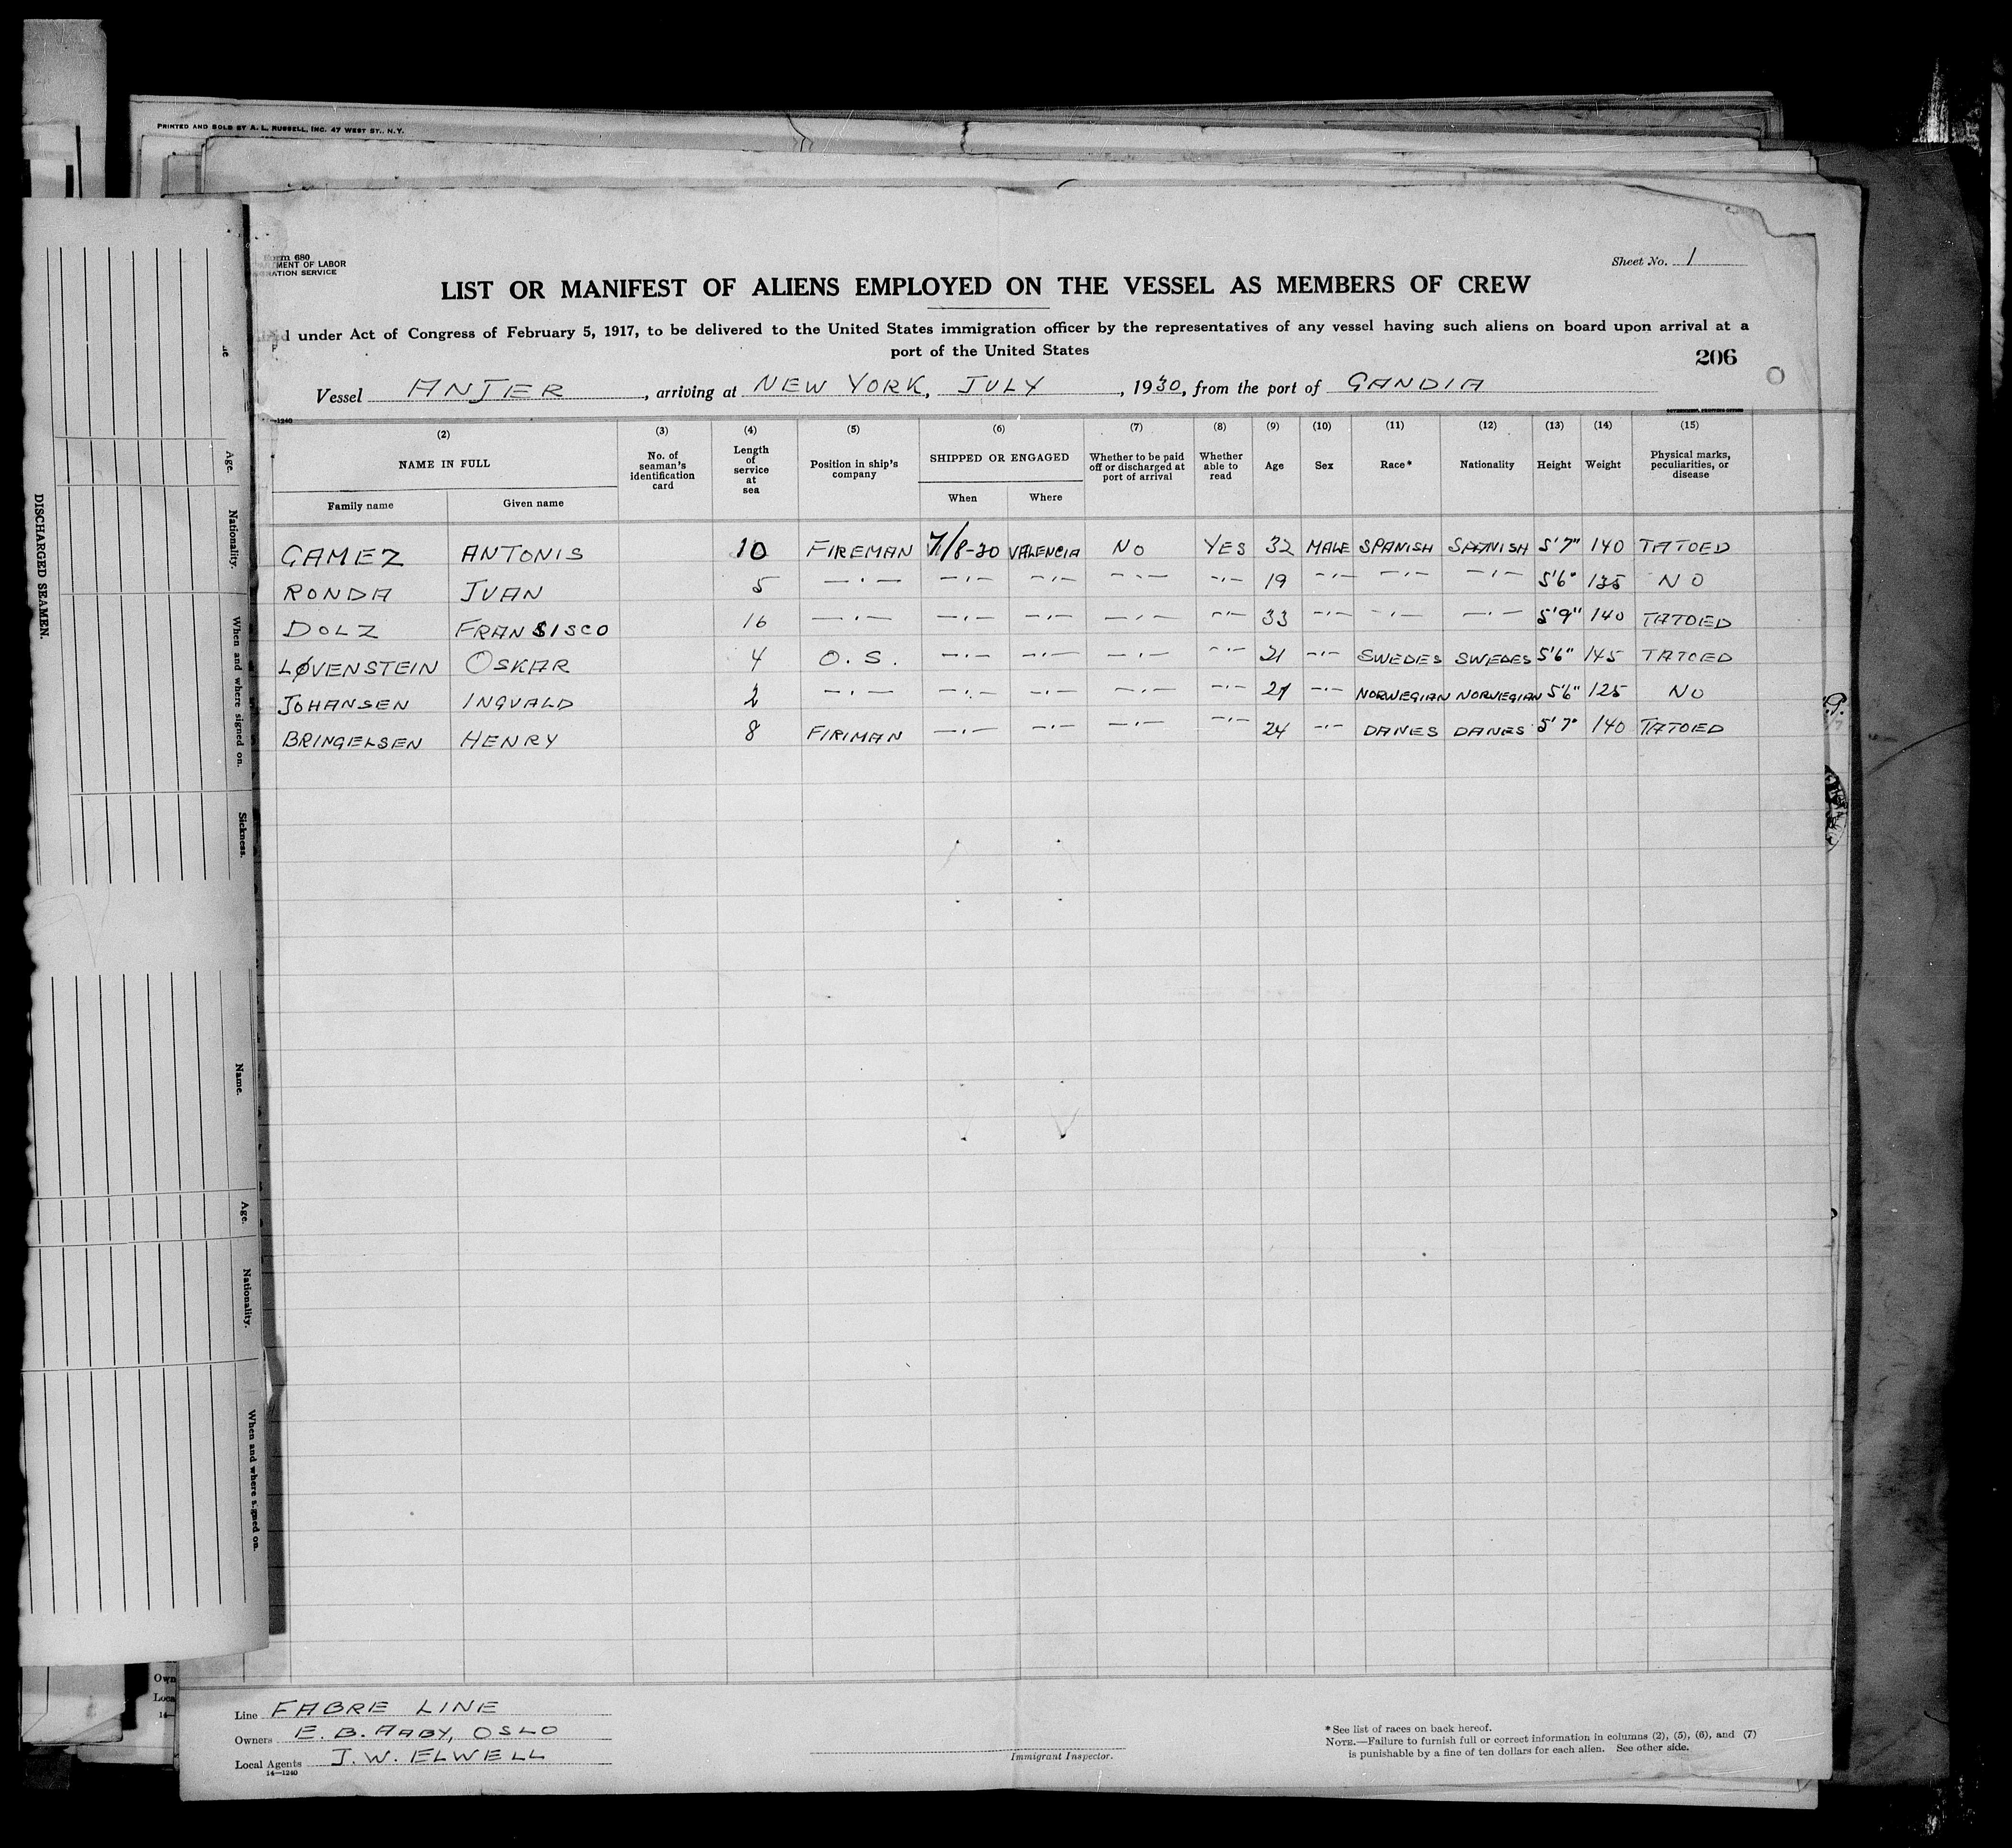 PRINTED AND SOLD BY A. L. RUSSELL, INC. 47 WEST ST., N.Y.
Form 680
MENT OF LABOR
RATION SERVICE
Sheet No. 1
LIST OR MANIFEST OF ALIENS EMPLOYED ON THE VESSEL AS MEMBERS OF CREW
under Act of Congress of February 5, 1917, to be delivered to the United States immigration officer by the representatives of any vessel having such aliens on board upon arrival at a
port of the United States
206
Vessel ANJER, arriving at NEW YORK, JULY, 1930, from the port of GANDIA
—1240
GOVERNMENT PRINTING OFFICE
(2) (3) (4) (5) (6) (7) (8) (9) (10) (11) (12) (13) (14) (15)
NAME IN FULL
Family name Given name
No. of seaman's identification card
Length of service at sea
Position in ship's company
SHIPPED OR ENGAGED
When Where
Whether to be paid off or discharged at port of arrival
Whether able to read
Age
Sex
Race*
Nationality
Height
Weight
Physical marks, peculiarities, or disease
GAMEZ ANTONIS 10 FIREMAN 7/8-30 VALENCIA NO YES 32 MALE SPANISH SPANISH 5'7" 140 TATOED
RONDA JUAN 5 —·— —·— —·— —·— —·— 19 —·— —·— —·— 5'6" 135 NO
DOLZ FRANSISCO 16 —·— —·— —·— —·— —·— 33 —·— —·— —·— 5'9" 140 TATOED
LØVENSTEIN OSKAR 4 O. S. —·— —·— —·— —·— 21 —·— SWEDES SWEDES 5'6" 145 TATOED
JOHANSEN INGVALD 2 —·— —·— —·— —·— —·— 21 —·— NORWEGIAN NORWEGIAN 5'6" 125 NO
BRINGELSEN HENRY 8 FIRIMAN —·— —·— —·— —·— 24 —·— DANES DANES 5'7" 140 TATOED
DISCHARGED SEAMEN.
Age.
Nationality.
When and where signed on.
Sickness.
Name.
Age.
Nationality.
When and where signed on.
Own
Loca
14—
Line FABRE LINE
Owners E. B. AABY, OSLO
Local Agents J. W. ELWELL
14—1240
Immigrant Inspector.
* See list of races on back hereof.
NOTE.—Failure to furnish full or correct information in columns (2), (5), (6), and (7)
is punishable by a fine of ten dollars for each alien. See other side.